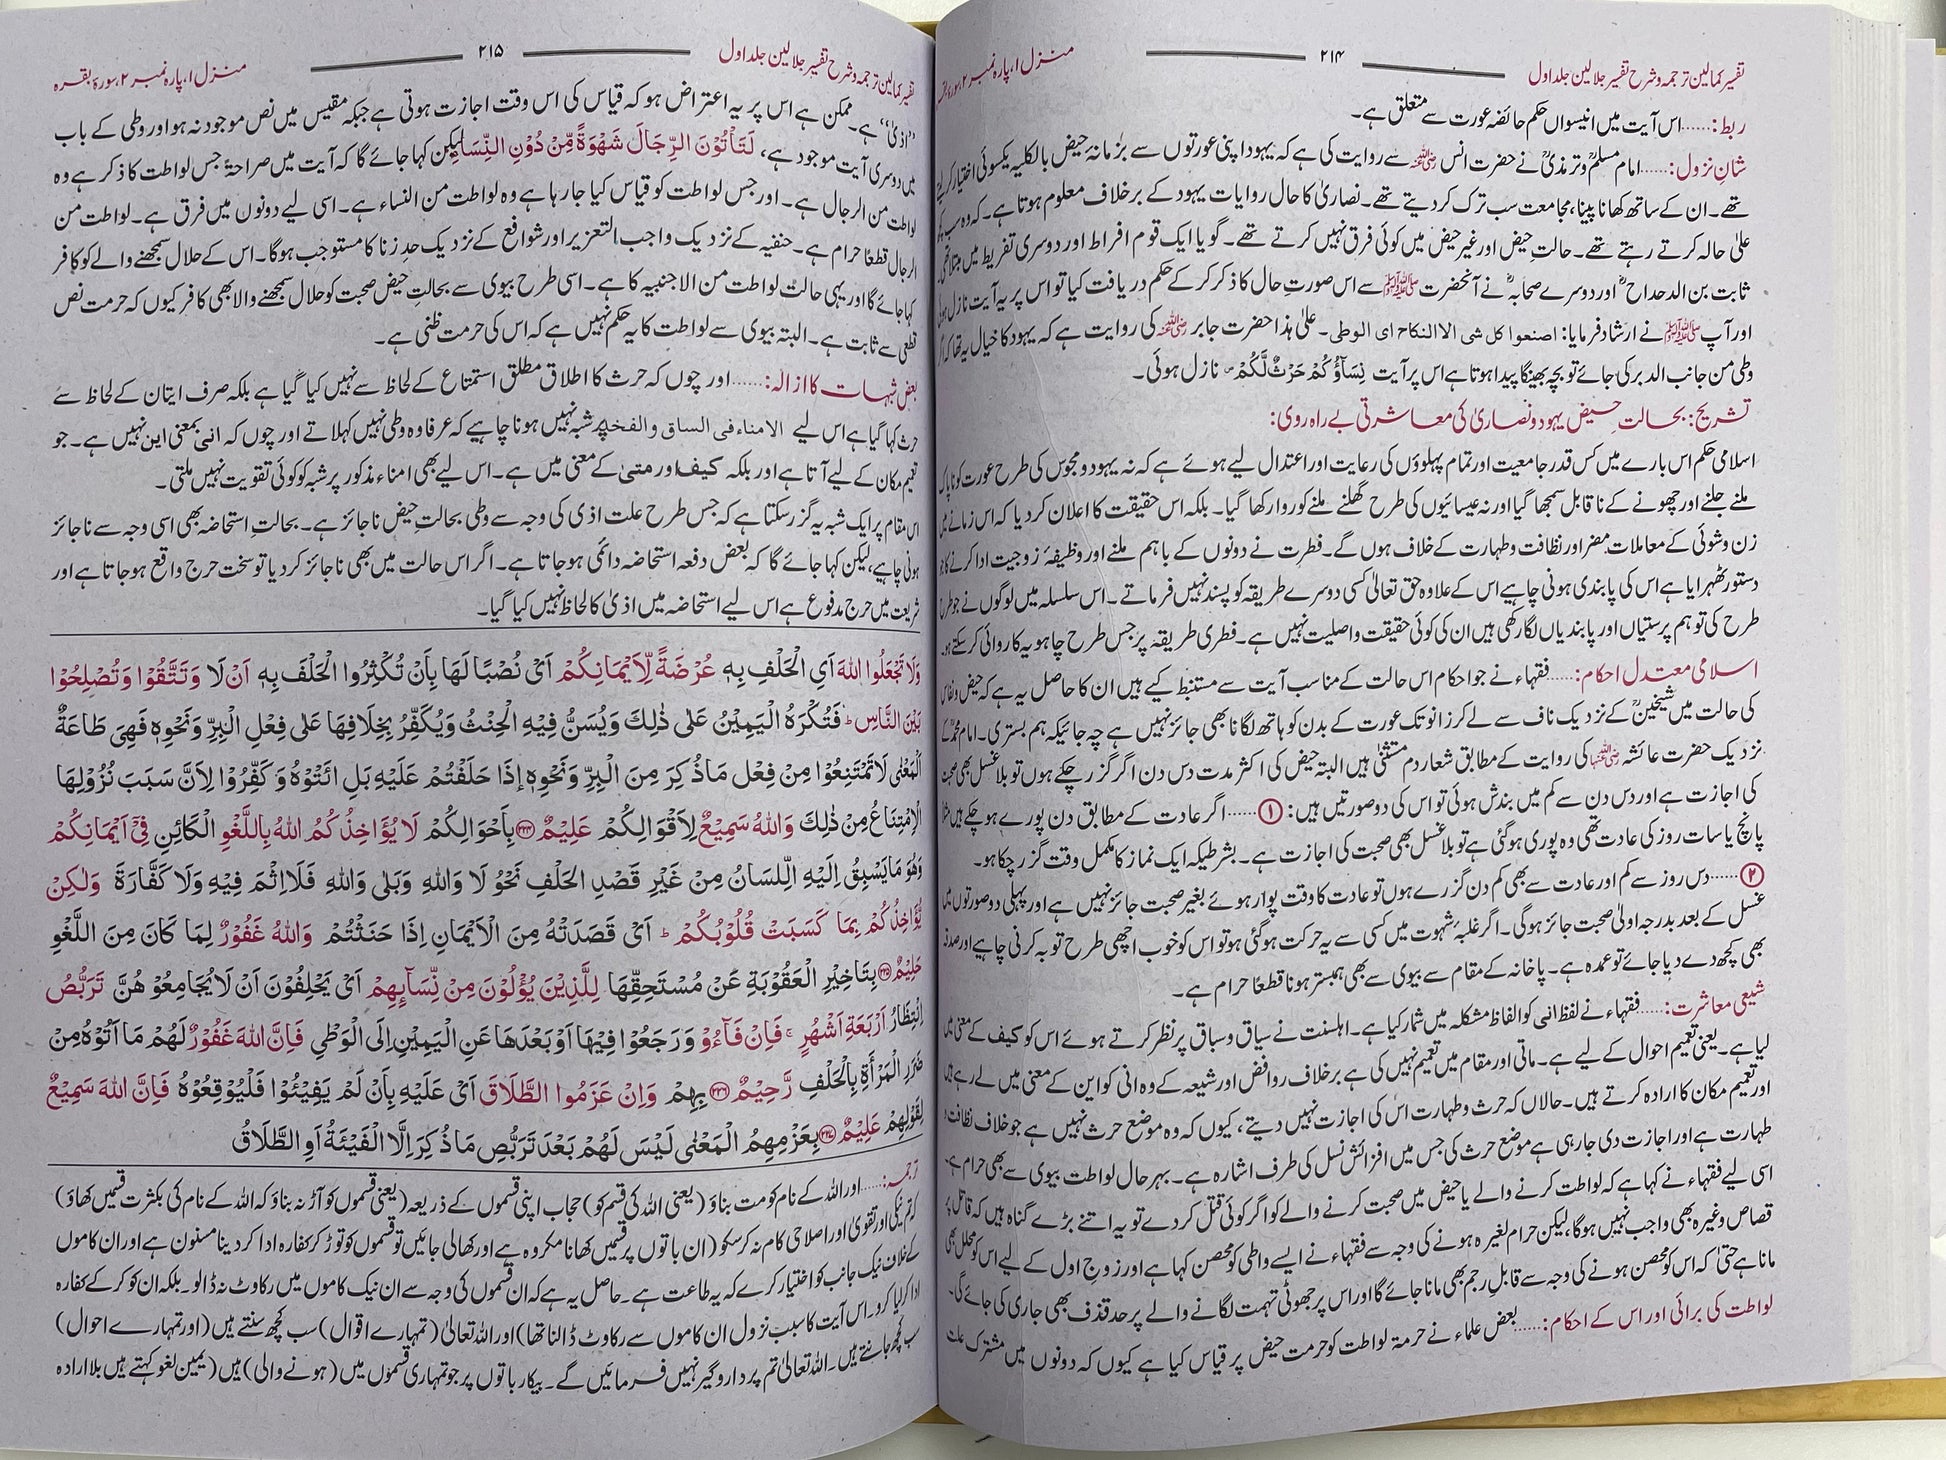 تفسیر کمالین ترجمہ و شرح تفسیر جلالین جلد اول ۲۱۴ منزل ۱، پارہ نمبر ۲، سورۂ بقرہ
ربط: ...... اس آیت میں انیسواں حکم حائضہ عورت سے متعلق ہے۔
شانِ نزول: ...... امام مسلمؒ و ترمذیؒ نے حضرت انس رضی اللہ عنہ سے روایت کی ہے کہ یہود اپنی عورتوں سے بزمانۂ حیض بالکلیہ یکسوئی اختیار کر لیتے
تھے۔ ان کے ساتھ کھانا پینا، مجامعت سب ترک کر دیتے تھے۔ نصاریٰ کا حال روایات یہود کے برخلاف معلوم ہوتا ہے۔ کہ وہ سب کچھ
علیٰ حالہ کرتے رہتے تھے۔ حالتِ حیض اور غیر حیض میں کوئی فرق نہیں کرتے تھے۔ گویا ایک قوم افراط اور دوسری تفریط میں مبتلا تھی
ثابت بن الدحداح ؓ اور دوسرے صحابہ ؓ نے آنحضرت ﷺ سے اس صورتِ حال کا ذکر کر کے حکم دریافت کیا تو اس پر یہ آیت نازل ہوئی
اور آپ ﷺ نے ارشاد فرمایا: اصنعوا کل شی الا النکاح ای الوطی۔ علیٰ ہذا حضرت جابر رضی اللہ عنہ کی روایت ہے کہ یہود کا خیال یہ تھا کہ اگر
وطی من جانب الدبر کی جائے تو بچہ بھینگا پیدا ہوتا ہے اس پر آیت نِسَآؤُکُمْ حَرْثٌ لَّکُمْ نازل ہوئی۔
تشریح: بحالتِ حیض یہود و نصاریٰ کی معاشرتی بے راہ روی:
اسلامی حکم اس بارے میں کس قدر جامعیت اور تمام پہلوؤں کی رعایت اور اعتدال لیے ہوئے ہے کہ نہ یہود و مجوس کی طرح عورت کو ناپاک
ملنے جلنے اور چھونے کے ناقابل سمجھا گیا اور نہ عیسائیوں کی طرح گھلنے ملنے کو روا رکھا گیا۔ بلکہ اس حقیقت کا اعلان کر دیا کہ اس زمانے میں
زن و شوئی کے معاملات مضر اور نظافت و طہارت کے خلاف ہوں گے۔ فطرت نے دونوں کے باہم ملنے اور وظیفۂ زوجیت ادا کرنے کا جو
دستور ٹھہرایا ہے اس کی پابندی ہونی چاہیے اس کے علاوہ حق تعالیٰ کسی دوسرے طریقہ کو پسند نہیں فرماتے۔ اس سلسلہ میں لوگوں نے جو طرح
طرح کی توہم پرستیاں اور پابندیاں لگا رکھی ہیں ان کی کوئی حقیقت و اصلیت نہیں ہے۔ فطری طریقہ پر جس طرح چاہو یہ کاروائی کر سکتے ہو۔
اسلامی معتدل احکام: ...... فقہاء نے جو احکام اس حالت کے مناسب آیت سے مستنبط کیے ہیں ان کا حاصل یہ ہے کہ حیض و نفاس
کی حالت میں شیخینؒ کے نزدیک ناف سے لے کر زانو تک عورت کے بدن کو ہاتھ لگانا بھی جائز نہیں ہے چہ جائیکہ ہم بستری۔ امام محمدؒ کے
نزدیک حضرت عائشہ رضی اللہ عنہا کی روایت کے مطابق شعار دم مستثنیٰ ہیں البتہ حیض کی اکثر مدت دس دن اگر گزر چکے ہوں تو بلا غسل بھی صحبت
کی اجازت ہے اور دس دن سے کم میں بندش ہوئی تو اس کی دو صورتیں ہیں: ① ...... اگر عادت کے مطابق دن پورے ہو چکے ہیں مثلاً
پانچ یا سات روز کی عادت تھی وہ پوری ہو گئی ہے تو بلا غسل بھی صحبت کی اجازت ہے۔ بشرطیکہ ایک نماز کا مکمل وقت گزر چکا ہو۔
② ...... دس روز سے کم اور عادت سے بھی کم دن گزرے ہوں تو عادت کا وقت پورا ہوئے بغیر صحبت جائز نہیں ہے اور پہلی دو صورتوں میں
غسل کے بعد بدرجہ اولیٰ صحبت جائز ہو گی۔ اگر غلبۂ شہوت میں کسی سے یہ حرکت ہو گئی ہو تو اس کو خوب اچھی طرح توبہ کرنی چاہیے اور صدقہ
بھی کچھ دے دیا جائے تو عمدہ ہے۔ پاخانہ کے مقام سے بیوی سے بھی ہمبستر ہونا قطعًا حرام ہے۔
شیعی معاشرت: ...... فقہاء نے لفظ انی کو الفاظ مشکلہ میں شمار کیا ہے۔ اہلسنت نے سیاق و سباق پر نظر کرتے ہوئے اس کو کیف کے معنی میں
لیا ہے۔ یعنی تعمیم احوال کے لیے ہے۔ ماتی اور مقام میں تعمیم نہیں کی ہے برخلاف روافض اور شیعہ کے وہ انی کو این کے معنی میں لے رہے ہیں
اور تعمیم مکان کا ارادہ کرتے ہیں۔ حالاں کہ حرث و طہارت اس کی اجازت نہیں دیتے، کیوں کہ وہ موضع حرث نہیں ہے جو خلاف نظافت و
طہارت ہے اور اجازت دی جا رہی ہے موضع حرث کی جس میں افزائش نسل کی طرف اشارہ ہے۔ بہر حال لواطت بیوی سے بھی حرام ہے۔
اسی لیے فقہاء نے کہا ہے کہ لواطت کرنے والے یا حیض میں صحبت کرنے والے کو اگر کوئی قتل کر دے تو یہ اتنے بڑے گناہ ہیں کہ قاتل پر
قصاص وغیرہ بھی واجب نہیں ہوگا، لیکن حرام لغیرہ ہونے کی وجہ سے فقہاء نے ایسے واطی کو محصن کہا ہے اور زوجِ اول کے لیے اس کو محلل بھی
مانا ہے حتیٰ کہ اس کو محصن ہونے کی وجہ سے قابلِ رجم بھی مانا جائے گا اور اس پر جھوٹی تہمت لگانے والے پر حد قذف بھی جاری کی جائے گی۔
لواطت کی برائی اور اس کے احکام: ...... بعض علماء نے حرمۃ لواطت کو حرمت حیض پر قیاس کیا ہے کیوں کہ دونوں میں مشترک علت
تفسیر کمالین ترجمہ و شرح تفسیر جلالین جلد اول ۲۱۵ منزل ۱، پارہ نمبر ۲، سورۂ بقرہ
"اذیٰ" ہے۔ ممکن ہے اس پر یہ اعتراض ہو کہ قیاس کی اس وقت اجازت ہوتی ہے جبکہ مقیس میں نص موجود نہ ہو اور وطی کے باب
میں دوسری آیت موجود ہے، لَتَأْتُوْنَ الرِّجَالَ شَهْوَةً مِّنْ دُوْنِ النِّسَآءِ لیکن کہا جائے گا کہ آیت میں صراحۃً جس لواطت کا ذکر ہے وہ
لواطت من الرجال ہے۔ اور جس لواطت کو قیاس کیا جا رہا ہے وہ لواطت من النساء ہے۔ اسی لیے دونوں میں فرق ہے۔ لواطت من
الرجال قطعًا حرام ہے۔ حنفیہ کے نزدیک واجب التعزیر اور شوافع کے نزدیک حد زنا کا مستوجب ہوگا۔ اس کے حلال سمجھنے والے کو کافر
کہا جائے گا اور یہی حالت لواطت من الاجنبیہ کا ہے۔ اسی طرح بیوی سے بحالتِ حیض صحبت کو حلال سمجھنے والا بھی کافر کیوں کہ حرمت نص
قطعی سے ثابت ہے۔ البتہ بیوی سے لواطت کا یہ حکم نہیں ہے کہ اس کی حرمت ظنی ہے۔
بعض شبہات کا ازالہ: ...... اور چوں کہ حرث کا اطلاق مطلق استمتاع کے لحاظ سے نہیں کیا گیا ہے بلکہ صرف ایتان کے لحاظ سے
حرث کہا گیا ہے اس لیے الامناء فی الساق والفخذ پر شبہ نہیں ہونا چاہیے کہ عرفا وہ وطی نہیں کہلاتے اور چوں کہ انی بمعنی این نہیں ہے۔ جو
تعمیم مکان کے لیے آتا ہے اور بلکہ کیف اور متیٰ کے معنی میں ہے۔ اس لیے بھی امناء مذکور پر شبہ کو کوئی تقویت نہیں ملتی۔
اس مقام پر ایک شبہ یہ گزر سکتا ہے کہ جس طرح علت اذی کی وجہ سے وطی بحالتِ حیض ناجائز ہے۔ بحالتِ استحاضہ بھی اسی وجہ سے ناجائز
ہونی چاہیے، لیکن کہا جائے گا کہ بعض دفعہ استحاضہ دائمی ہو جاتا ہے۔ اگر اس حالت میں بھی ناجائز کر دیا تو سخت حرج واقع ہو جاتا ہے اور
شریعت میں حرج مدفوع ہے اس لیے استحاضہ میں اذیٰ کا لحاظ نہیں کیا گیا۔
وَلَا تَجْعَلُوا اللّٰهَ اَیِ الْحَلْفِ بِهٖ عُرْضَةً لِّاَیْمَانِكُمْ اَیْ نُصْبًا لَهَا بِأَنْ تُكْثِرُوا الْحَلْفَ بِهٖ اَنْ لَا وَتَتَّقُوْا وَتُصْلِحُوْا
بَیْنَ النَّاسِ ؕ فَتُكْرَهُ الْیَمِیْنُ عَلٰی ذٰلِكَ وَیُسَنُّ فِیْهِ الْحِنْثُ وَیُكَفِّرُ بِخِلَافِهَا عَلٰی فِعْلِ الْبِرِّ وَنَحْوِهٖ فَهِیَ طَاعَةٌ
اَلْمَعْنٰی لَا تَمْتَنِعُوْا مِنْ فِعْلِ مَا ذُكِرَ مِنَ الْبِرِّ وَنَحْوِهٖ إِذَا حَلَفْتُمْ عَلَیْهِ بَلِ ائْتُوْهُ وَكَفِّرُوْا لِاَنَّ سَبَبَ نُزُوْلِهَا
الْاِمْتِنَاعُ مِنْ ذٰلِكَ وَاللّٰهُ سَمِیْعٌ لِاَقْوَالِكُمْ عَلِیْمٌ ﴿۲۲۴﴾ بِأَحْوَالِكُمْ لَا یُؤَاخِذُكُمُ اللّٰهُ بِاللَّغْوِ الْكَائِنِ فِیْٓ اَیْمَانِكُمْ
وَهُوَ مَا یَسْبِقُ اِلَیْهِ اللِّسَانُ مِنْ غَیْرِ قَصْدِ الْحَلْفِ نَحْوُ لَا وَاللّٰهِ وَبَلٰی وَاللّٰهِ فَلَا اِثْمَ فِیْهِ وَلَا كَفَّارَةَ وَلٰكِنْ
یُّؤَاخِذُكُمْ بِمَا كَسَبَتْ قُلُوْبُكُمْ ؕ اَیْ قَصَدَتْهُ مِنَ الْاَیْمَانِ اِذَا حَنَثْتُمْ وَاللّٰهُ غَفُوْرٌ لِمَا كَانَ مِنَ اللَّغْوِ
حَلِیْمٌ ﴿۲۲۵﴾ بِتَاخِیْرِ الْعَقُوْبَةِ عَنْ مُسْتَحِقِّهَا لِلَّذِیْنَ یُؤْلُوْنَ مِنْ نِّسَآىِٕهِمْ اَیْ یَحْلِفُوْنَ اَنْ لَا یُجَامِعُوْهُنَّ تَرَبُّصُ
اِنْتِظَارُ اَرْبَعَةِ اَشْهُرٍ ۚ فَاِنْ فَآءُوْ وَرَجَعُوْا فِیْهَا اَوْ بَعْدَهَا عَنِ الْیَمِیْنِ اِلَی الْوَطْیِ فَاِنَّ اللّٰهَ غَفُوْرٌ لَهُمْ مَا اَتَوْهُ مِنْ
ضَرَرِ الْمَرْأَةِ بِالْحَلْفِ رَّحِیْمٌ ﴿۲۲۶﴾ بِهِمْ وَاِنْ عَزَمُوا الطَّلَاقَ اَیْ عَلَیْهِ بِأَنْ لَمْ یَفِیْئُوْا فَلْیُوْقِعُوْهُ فَاِنَّ اللّٰهَ سَمِیْعٌ
لِقَوْلِهِمْ عَلِیْمٌ ﴿۲۲۷﴾ بِعَزْمِهِمُ الْمَعْنٰی لَیْسَ لَهُمْ بَعْدَ تَرَبُّصِ مَا ذُكِرَ اِلَّا الْفَیْئَةُ اَوِ الطَّلَاقُ
ترجمہ: ...... اور اللہ کے نام کو مت بناؤ (یعنی اللہ کی قسم کو) حجاب اپنی قسموں کے ذریعہ (یعنی قسموں کو آڑ نہ بناؤ کہ اللہ کے نام کی بکثرت قسمیں کھاؤ)
کہ تم نیکی اور تقویٰ اور اصلاحی کام نہ کر سکو (ان باتوں پر قسمیں کھانا مکروہ ہے اور کھالی جائیں تو قسموں کو توڑ کر کفارہ ادا کر دینا مسنون ہے اور ان کاموں
کے خلاف نیک جانب کو اختیار کرے کہ یہ طاعت ہے۔ حاصل یہ ہے کہ ان قسموں کی وجہ سے ان نیک کاموں میں رکاوٹ نہ ڈالو۔ بلکہ ان کو کر کے کفارہ
ادا کر لیا کرو۔ اس آیت کا سبب نزول ان کاموں سے رکاوٹ ڈالنا تھا) اور اللہ تعالیٰ (تمہارے اقوال) سب کچھ سنتے ہیں (اور تمہارے احوال)
سب کچھ جانتے ہیں۔ اللہ تعالیٰ تم پر داروگیر نہیں فرمائیں گے۔ بیکار باتوں پر جو تمہاری قسموں میں (ہونے والی) ہیں (یمین لغو کہتے ہیں بلا ارادہ